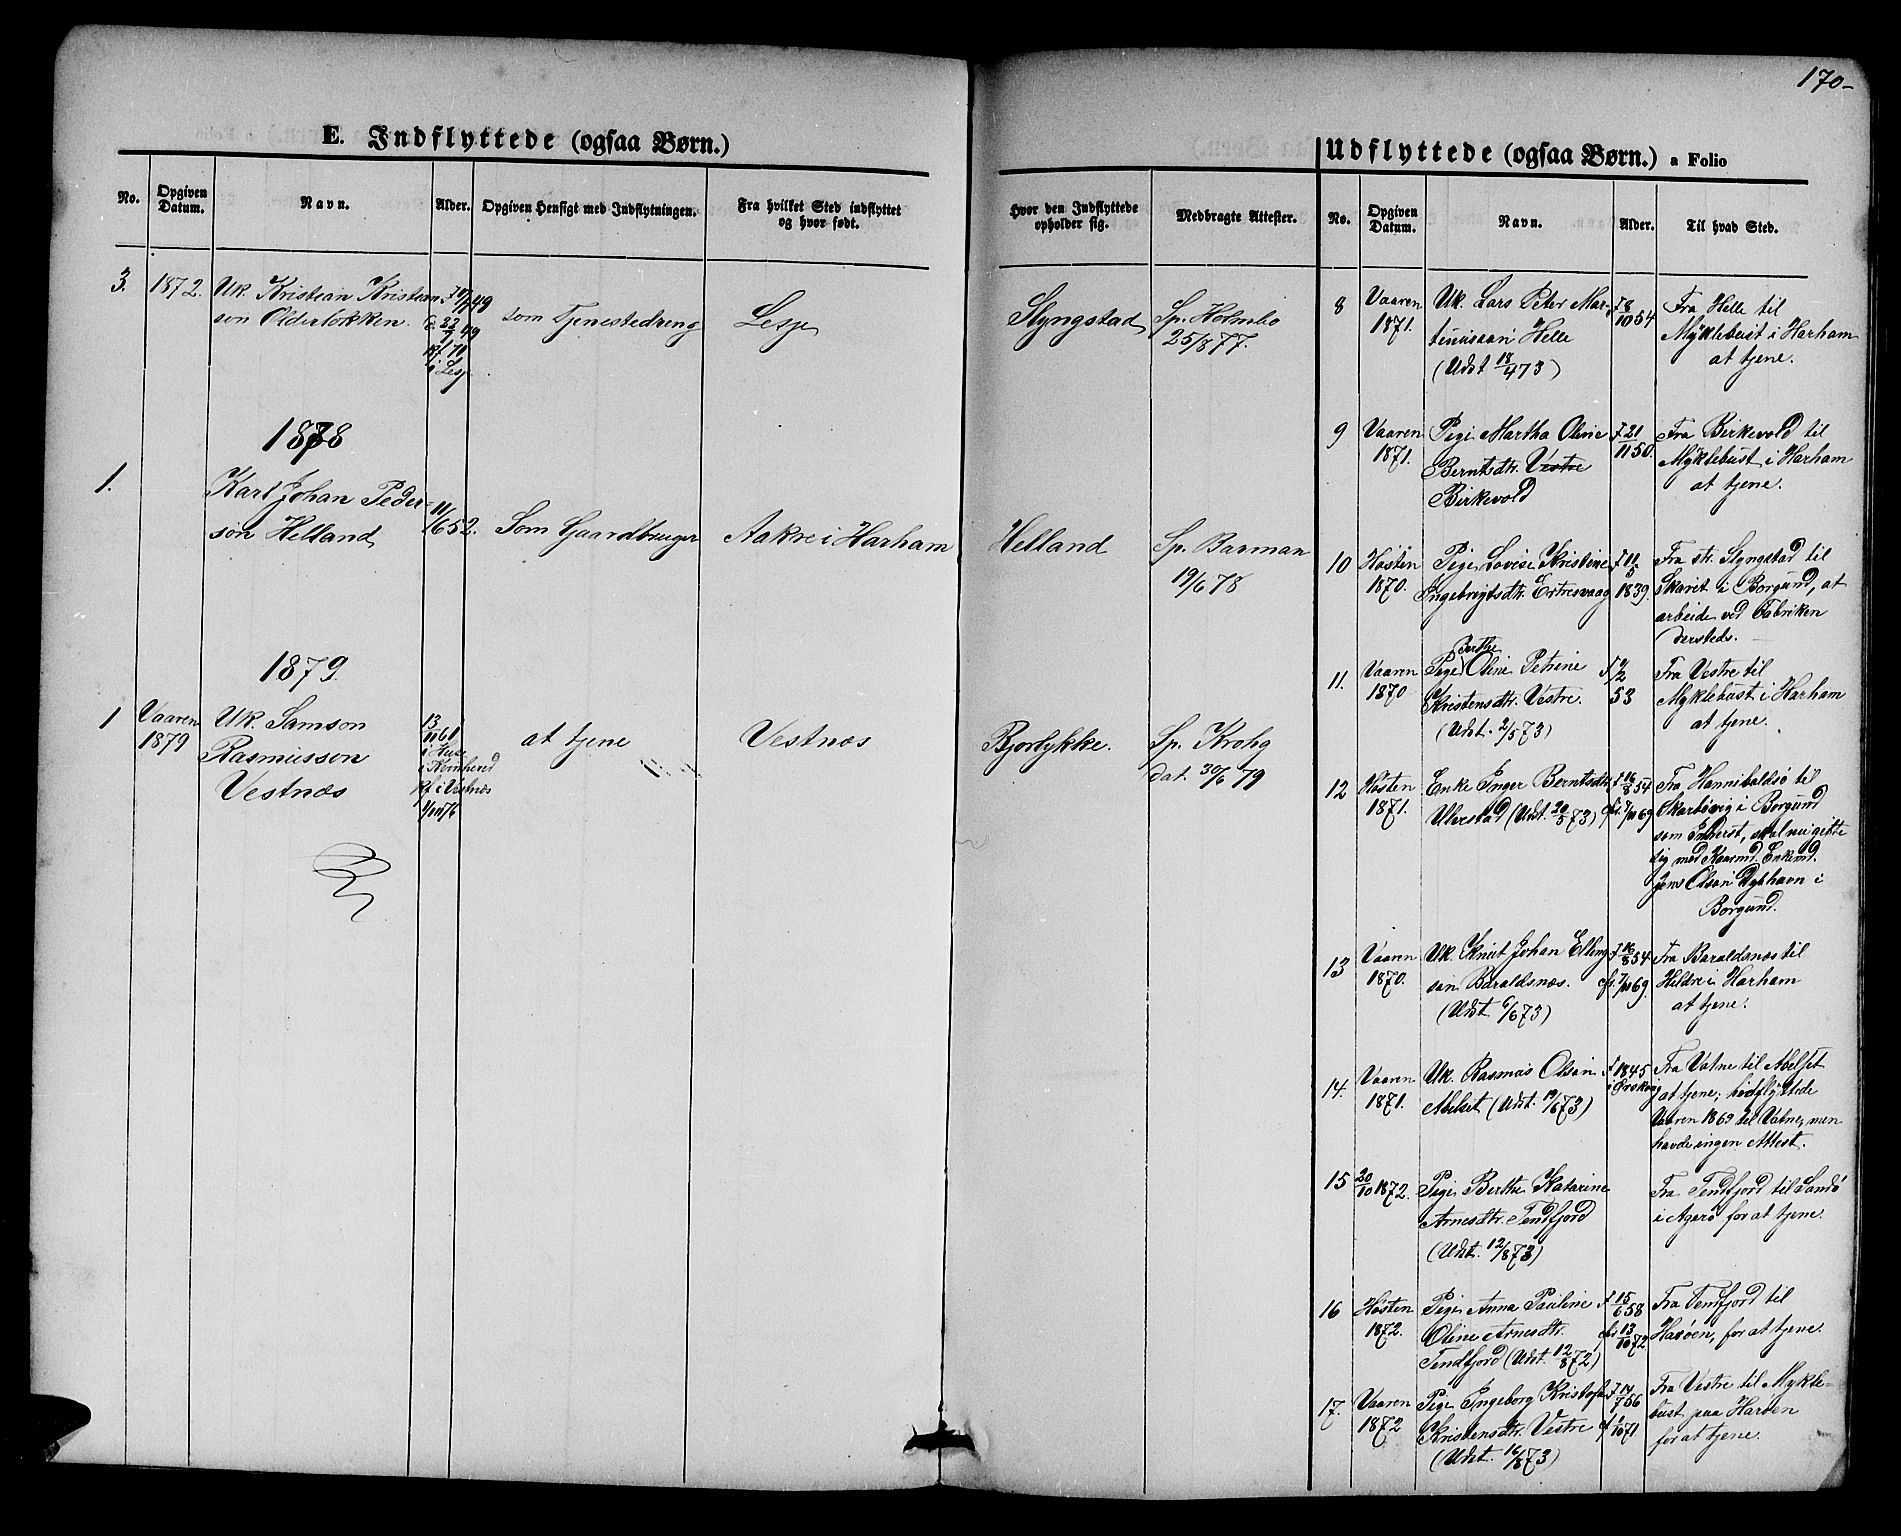 170-
E. Indflyttede (ogsaa Børn.)
No.
Opgiven Datum.
Navn.
Alder.
Opgiven Hensigt med Indflytningen.
Fra hvilket Sted indflyttet
og hvor født.
Hvor den Indflyttede
opholder sig.
Medbragte Attester.
3. 1872. Uk. Kristian Kristian
sen Olderløkken
som Tjenestedreng
Lesje
Slyngstad
Sp. Holmbo
25/8 77.
1878
1.
Karl Johan Peder-
sen Helland
11/16 52.
Som Gaardbruger
Aakre i Harham
Helland
Sp. Barman
19/6 78
1879.
1 Vaaren
1879
Uk. Samson
Rasmusson
Vestnæs
13/11 61
Kf. i Vestnæs
at tjene
Vestnæs
Bjorlykke.
Sp. Krohg
dat. 30/6 79
Udflyttede (ogsaa Børn.) a Folio
No.
Opgiven Datum.
Navn.
Alder.
Til hvad Sted.
8 Vaaren
1871.
Uk. Lars Peter Mar-
tinussen Helle
(Udst 18/4 73)
f 8/10 54
Fra Helle til
Myklebust i Harham
at tjene.
9 Vaaren
1871.
Pige Martha Oline
Berntsdtr. Vestre
Birkevold
f 21/11 50.
Fra Birkevold til
Myklebust i Harham
at tjene.
10 Høsten
1870.
Pige Lovise Kristine
Ingebrigtsdtr. Ertresvaag
f 11/5
1839.
Fra str. Slyngstad til
Skaret i Borgund, at
arbeide ved Fabriken
dersteds.
11. Vaaren
1870
Berthe
Pige Oline Petrine
Kristensdtr. Vestre.
(Udst. 2/5 73)
53
Fra Vestre til
Myklebust i Harham
at tjene.
12 Høsten
1871.
Enke Inger Berntsdtr
Ulvestad (Udst. 20/5 73)
f 16/8 54
cfr. 7/11 69
Fra Hannibaldsø til
Skarbøvig i Borgund
som Inderst, skal nu gifte
sig med Enkemd.
Jens Olsen Dybhavn i
Borgund.
13 Vaaren
1870.
Uk. Knut Johan Elling
sen Baraldsnæs.
(Udst 6/6 73)
f 16/8 54
cfr. 7/11 69.
Fra Baraldsnæs til
Hildre i Harham
at tjene.
14. Vaaren
1871.
Uk. Rasmus Olsen
Abelset (Udst. 19/6 73)
f 1845
i Ørskog
Fra Vatne til Abelset
at tjene; hidflyttede
Vaaren 1869 til Vatne, men
havde ingen Attest.
15 20/10 1872.
Pige Berthe Katarine
Arnesdtr. Tendfjord
(Udst. 12/8 73)
Fra Tendfjord til Sandø
i Agerø for at tjene.
16 Høsten
1872.
Pige Anna Pauline
Oline Arnesdtr.
Tendfjord (Udst. 12/8 72)
f 15/6 58
cfr 13/10 72
Fra Tendfjord til
Harøen, for at tjene.
17. Vaaren
1872
Pige Ingeborg Kristofa
Kristensdtr. Vestre
(Udst. 16/8 73)
f 14/7 56
Fra Vestre til Mykle-
bust paa Harøen
for at tjene.